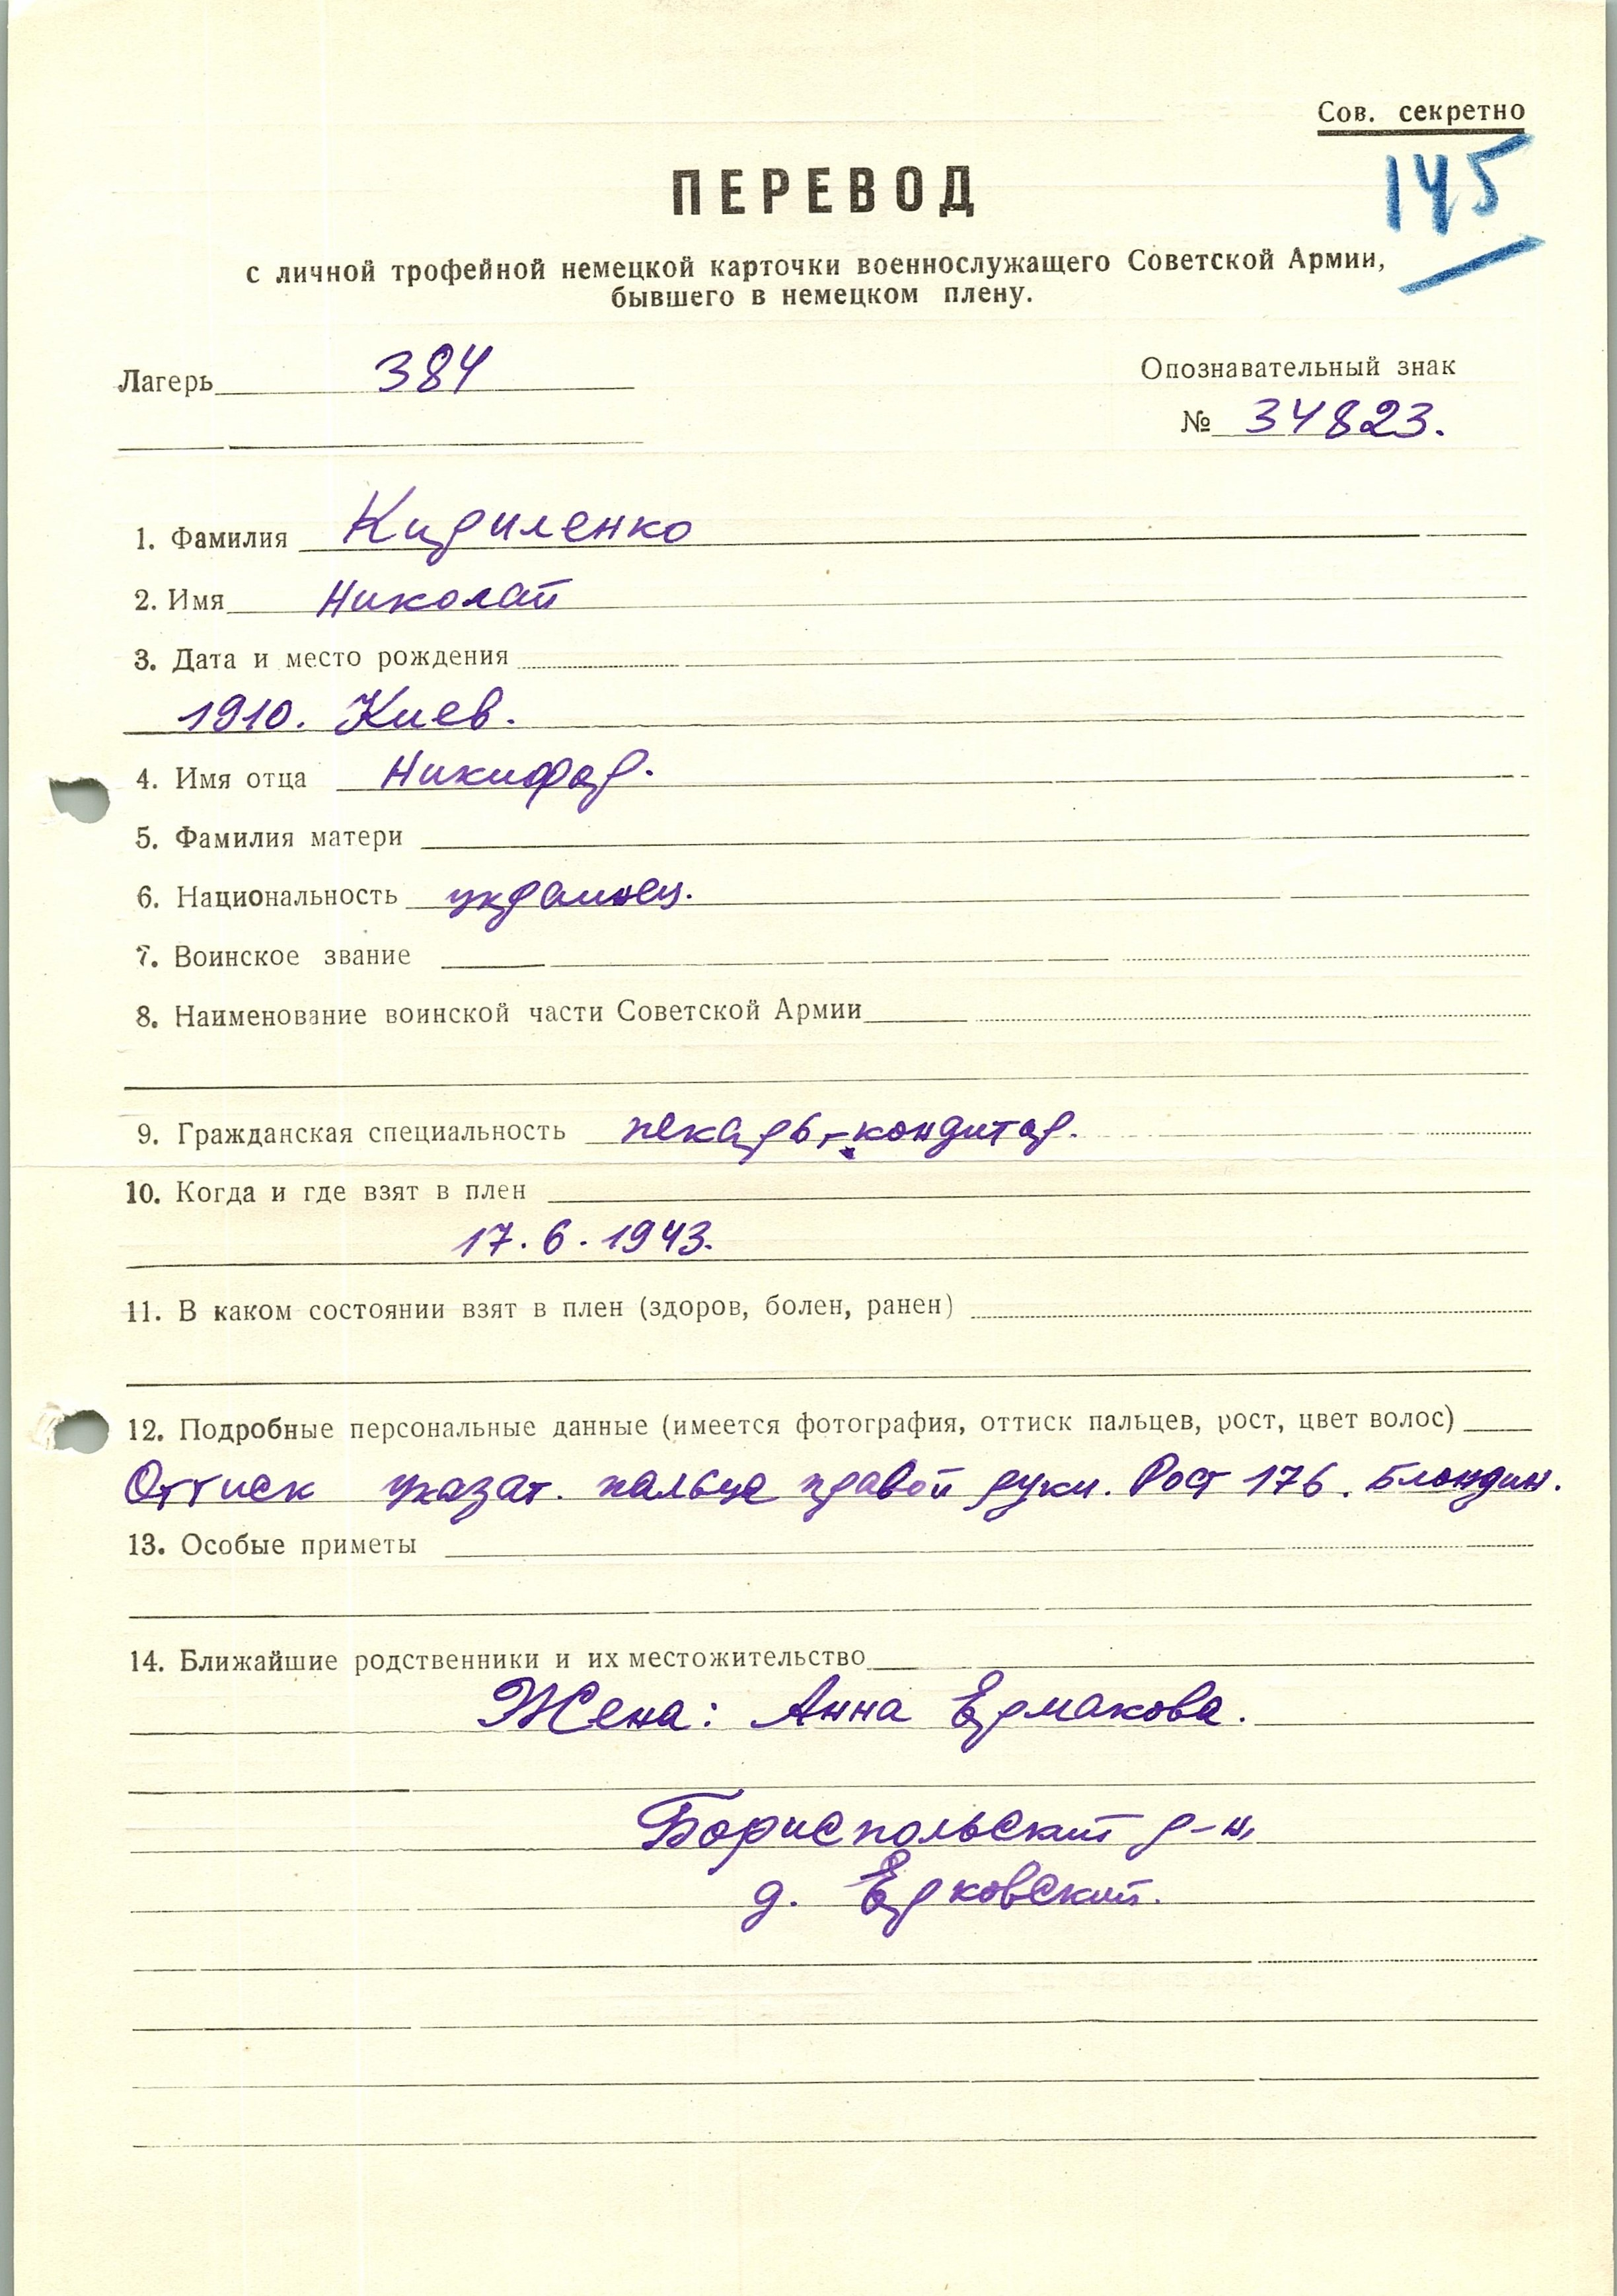 Сов. секретно
145
ПЕРЕВОД
с личной трофейной немецкой карточки военнослужащего Советской Армии,
бывшего в немецком плену.
Лагерь 384
Опознавательный знак
№ 34823.
1. Фамилия Кириленко
2. Имя Николай
3. Дата и место рождения
1910. Киев.
4. Имя отца Никифор.
5. Фамилия матери
6. Национальность украинец.
7. Воинское звание
8. Наименование воинской части Советской Армии
9. Гражданская специальность пекарь-кондитор.
10. Когда и где взят в плен
17.6.1943.
11. В каком состоянии взят в плен (здоров, болен, ранен)
12. Подробные персональные данные (имеется фотография, оттиск пальцев, рост, цвет волос)
Оттиск указат. пальца правой руки. Рост 176. Блондин.
13. Особые приметы
14. Ближайшие родственники и их местожительство
Жена: Анна Ермакова.
Бориспольский р-н,
д. Ерковский.